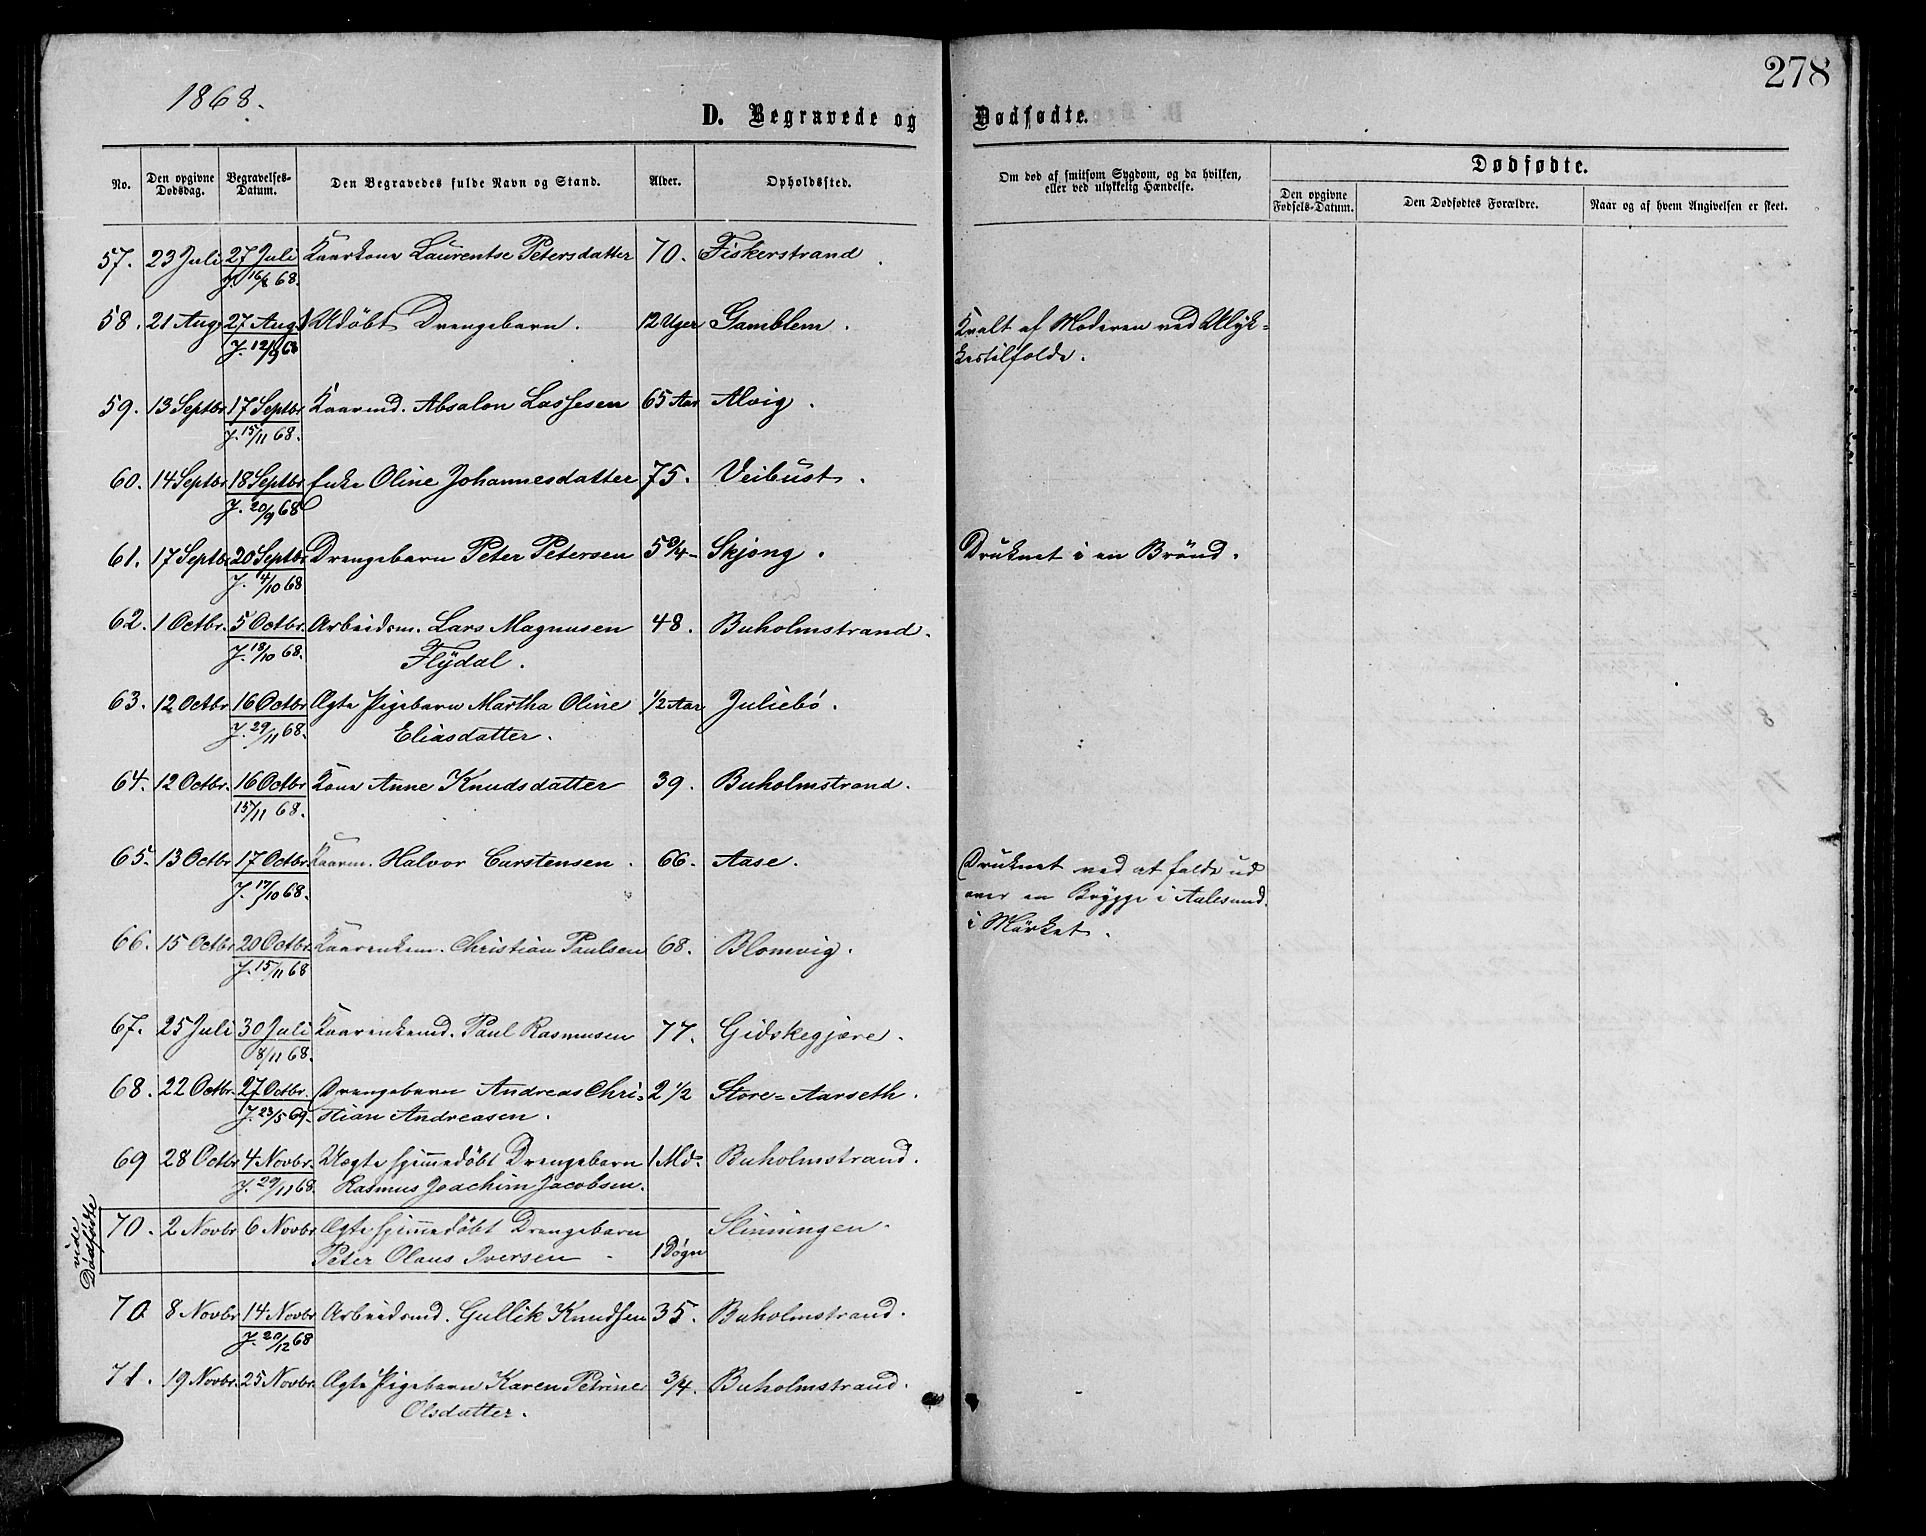 278
1868.
D. Begravede og Dødfødte.
No.
Den opgivne Dødsdag.
Begravelses-Datum.
Den Begravedes fulde Navn og Stand.
Alder.
Opholdssted.
Om død af smitsom Sygdom, og da hvilken, eller ved ulykkelig Hændelse.
Dødfødte.
Den opgivne Fødsels-Datum.
Den Dødfødtes Forældre.
Naar og af hvem Angivelsen er skeet.
57. 23 Juli 27 Juli Kaarkone Laurentse Petersdatter 70. Fiskerstrand.
J. 16/8 68.
58. 21 Aug. 27 Aug. Udøbt Drengebarn. 12 Uger Gamblem. Kvalt af Moderen ved Ulyk-
J. 12/9 68 kestilfælde.
59. 13 Septbr 17 Septbr Kaarmd. Absalon Lassesen 65 Aar Alvig.
J. 15/11 68.
60. 14 Septbr 18 Septbr Enke Oline Johannesdatter 75. Veibust.
J. 20/9 68
61. 17 Septbr 20 Septbr Drengebarn Peter Petersen 5 3/4 - Skjong. Druknet i en Brønd.
J. 4/10 68
62. 1 Octbr. 5 Octbr. Arbeidsm. Lars Magnusen 48. Buholmstrand.
J. 18/10 68. Flÿdal.
63. 12 Octbr 16 Octbr Ægte Pigebarn Martha Oline 1/2 Aar Juliebö.
J. 29/11 68. Eliasdatter.
64. 12 Octbr. 16 Octbr Kone Anne Knudsdatter 39. Buholmstrand.
15/11 68.
65. 13 Octbr 17 Octbr. Kaarm. Halvor Carstensen. 66. Aase. Druknet ved at falde ud
J. 17/10 68. over en Brygge i Aalesund
i Mørket.
66. 15 Octbr 20 Octbr. Kaarenkem. Christian Paulsen 68. Blomvig.
J. 15/11 68
67. 25 Juli 30 Juli Kaarenkemd. Paul Rasmusen 77. Gidskegjære.
8/11 68.
68. 22 Octbr. 27 Octbr. Drengebarn Andreas Chri- 2 1/2 Store-Aarseth.
J. 23/5 69. stian Andreasen.
69 28 Octbr 4 Novbr. Uægte hjemmedøbt Drengebarn 1 Md. Buholmstrand.
J. 29/11 68. Rasmus Joachim Jacobsen.
vide Dødfødte
70. 2 Novbr 6 Novbr Ægte hjemmedøbt Drengebarn Slinningen.
Peter Olaus Iversen - 1 Døgn
70 8 Novbr 14 Novbr Arbeidsmd. Gullik Knudsen 35. Buholmstrand.
J. 20/12 68
71. 19 Novbr. 25 Novbr. Ægte Pigebarn Karen Petrine 3/4. Buholmstrand.
Olsdatter.